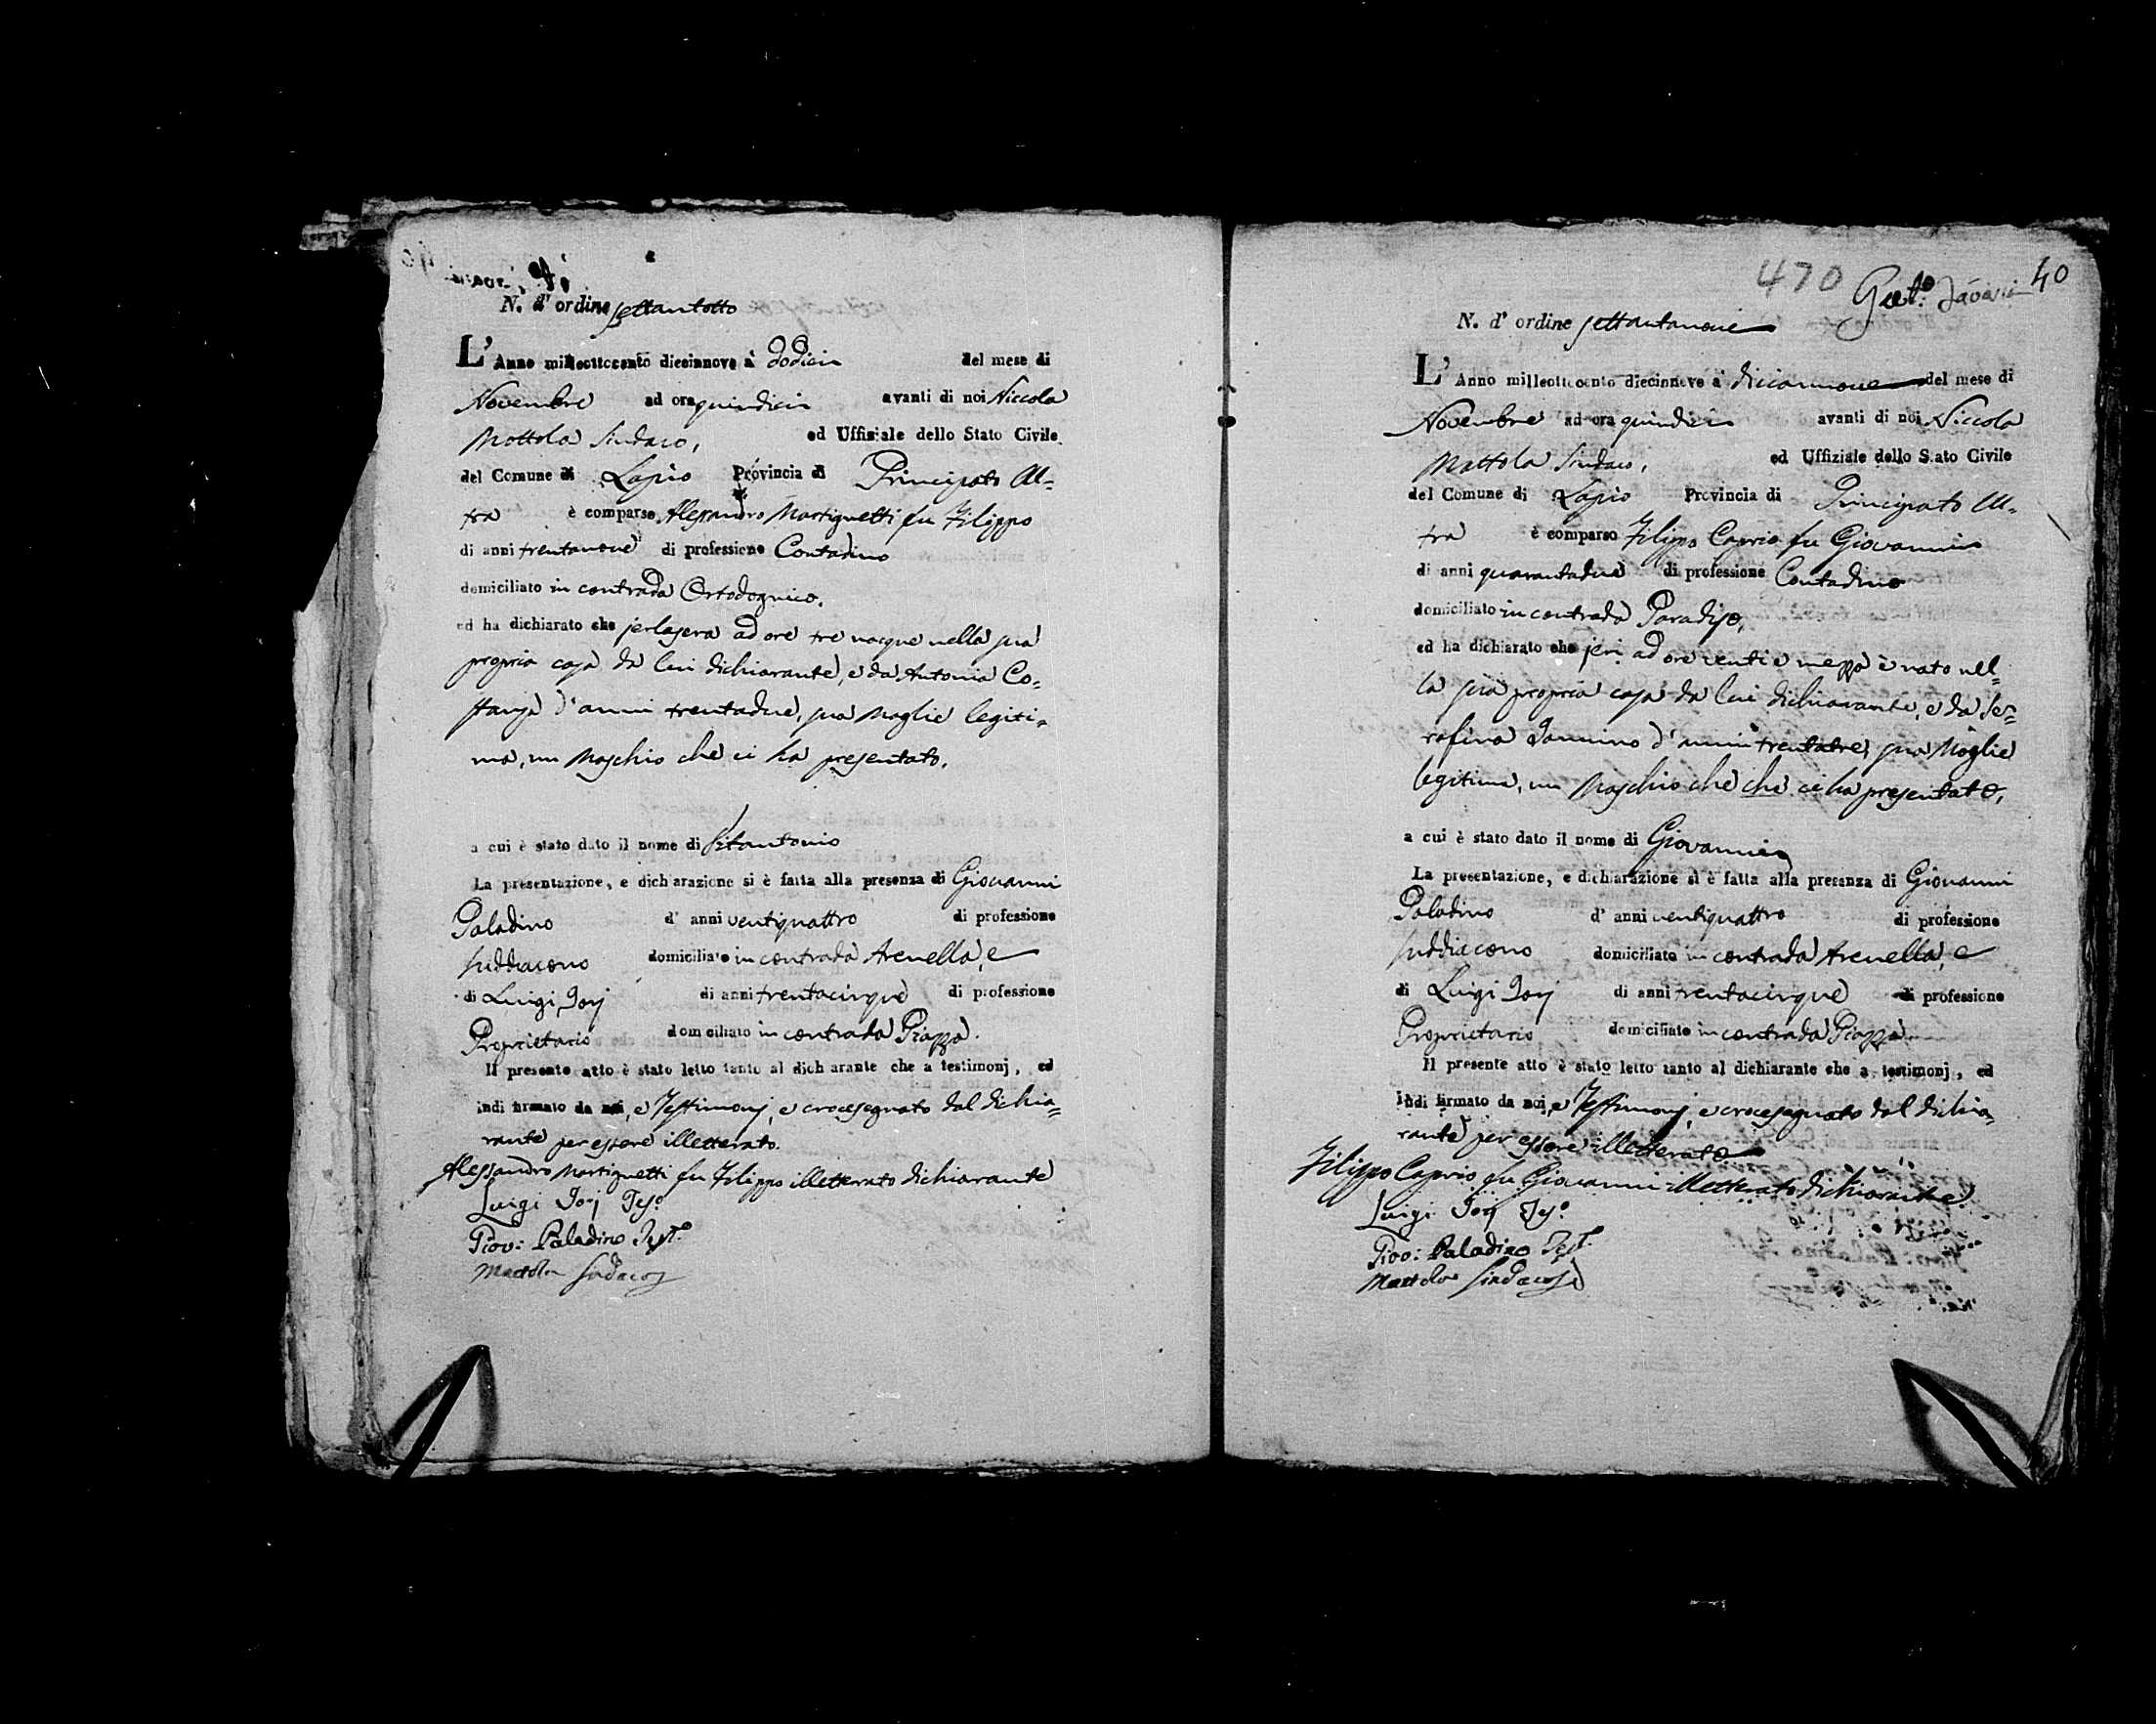 N. d' ordine settantotto
L' Anno milleottocento diecinnove à dodici del mese di
Novembre ad ora quindici avanti di noi Niccola
Mottola Sindaco, ed Uffiziale dello Stato Civile
del Comune di Lapio Provincia di Principato Ul=
tra è comparso Alessandro Martignetti fu Filippo
di anni trentanove di professione Contadino
domiciliato in contrada Ortodognico,
ed ha dichiarato che jerlasera ad ore tre nacque nella sua
propria casa da lui dichiarante, e da Antonia Co=
stanza d'anni trentadue, sua Moglie legiti=
ma, un Maschio che ci ha presentato,
a cui è stato dato il nome di Vitantonio
La presentazione, e dichiarazione si è fatta alla presenza di Giovanni
Paladino d' anni ventiquattro di professione
Suddiacono domiciliato in contrada Arenella, e
di Luigi Jorj di anni trentacinque di professione
Proprietario domiciliato in contrada Piazza.
Il presente atto è stato letto tanto al dichiarante che a testimonj, ed
indi firmato da noi, e Testimonj, e crocesegnato dal dichia=
rante per essere illetterato.
Alessandro Martignetti fu Filippo illetterato dichiarante
Luigi Jorj Tes.o
Giov: Paladino Test.o
Mottola Sindaco
470 40
N. d' ordine settantanove
L' Anno milleottocento diecinnove à diciannove del mese di
Novembre ad ora quindici avanti di noi Niccola
Mottola Sindaco, ed Uffiziale dello Stato Civile
del Comune di Lapio Provincia di Principato Ul=
tra è comparso Filippo Caprio fu Giovanni
di anni quarantadue di professione Contadino
domiciliato in contrada Paradiso,
ed ha dichiarato che jeri ad ore venti e mezza è nato nel=
la sua propria casa da lui dichiarante, e da Se=
rafina Jannino d'anni trentatre, sua Moglie
legitima, un Maschio che che ci ha presentato,
a cui è stato dato il nome di Giovanni
La presentazione, e dichiarazione si è fatta alla presenza di Giovanni
Paladino d' anni ventiquattro di professione
Suddiacono domiciliato in contrada Arenella, e
di Luigi Jorj di anni trentacinque di professione
Proprietario domiciliato in contrada Piazza
Il presente atto è stato letto tanto al dichiarante che a testimonj, ed
indi firmato da noi, e Testimonj, e crocesegnato dal dichia=
rante per essere illetterato
Filippo Caprio fu Giovanni illetterato dichiarante
Luigi Jorj Tes.o
Giov: Paladino Test.
Mottola Sindaco